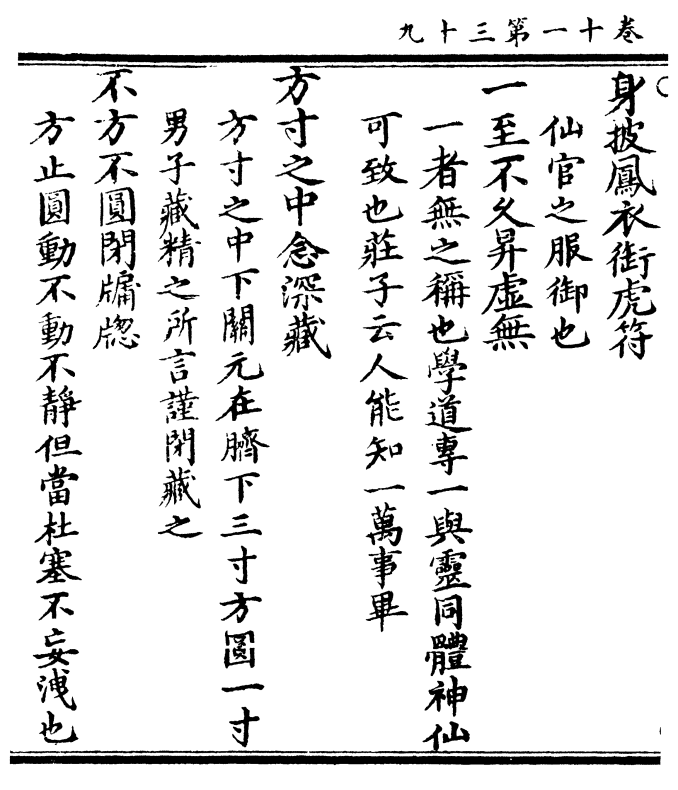 卷十一第三十九
身披鳳衣銜虎符
仙官之服御也
一至不久昇虛無
一者無之稱也學道專一與靈同體神仙
可致也莊子云人能知一萬事畢
方寸之中念深藏
方寸之中下關元在臍下三寸方圓一寸
男子藏精之所言謹閉藏之
不方不圓閉牖窓
方止圓動不動不靜但當杜塞不妄洩也